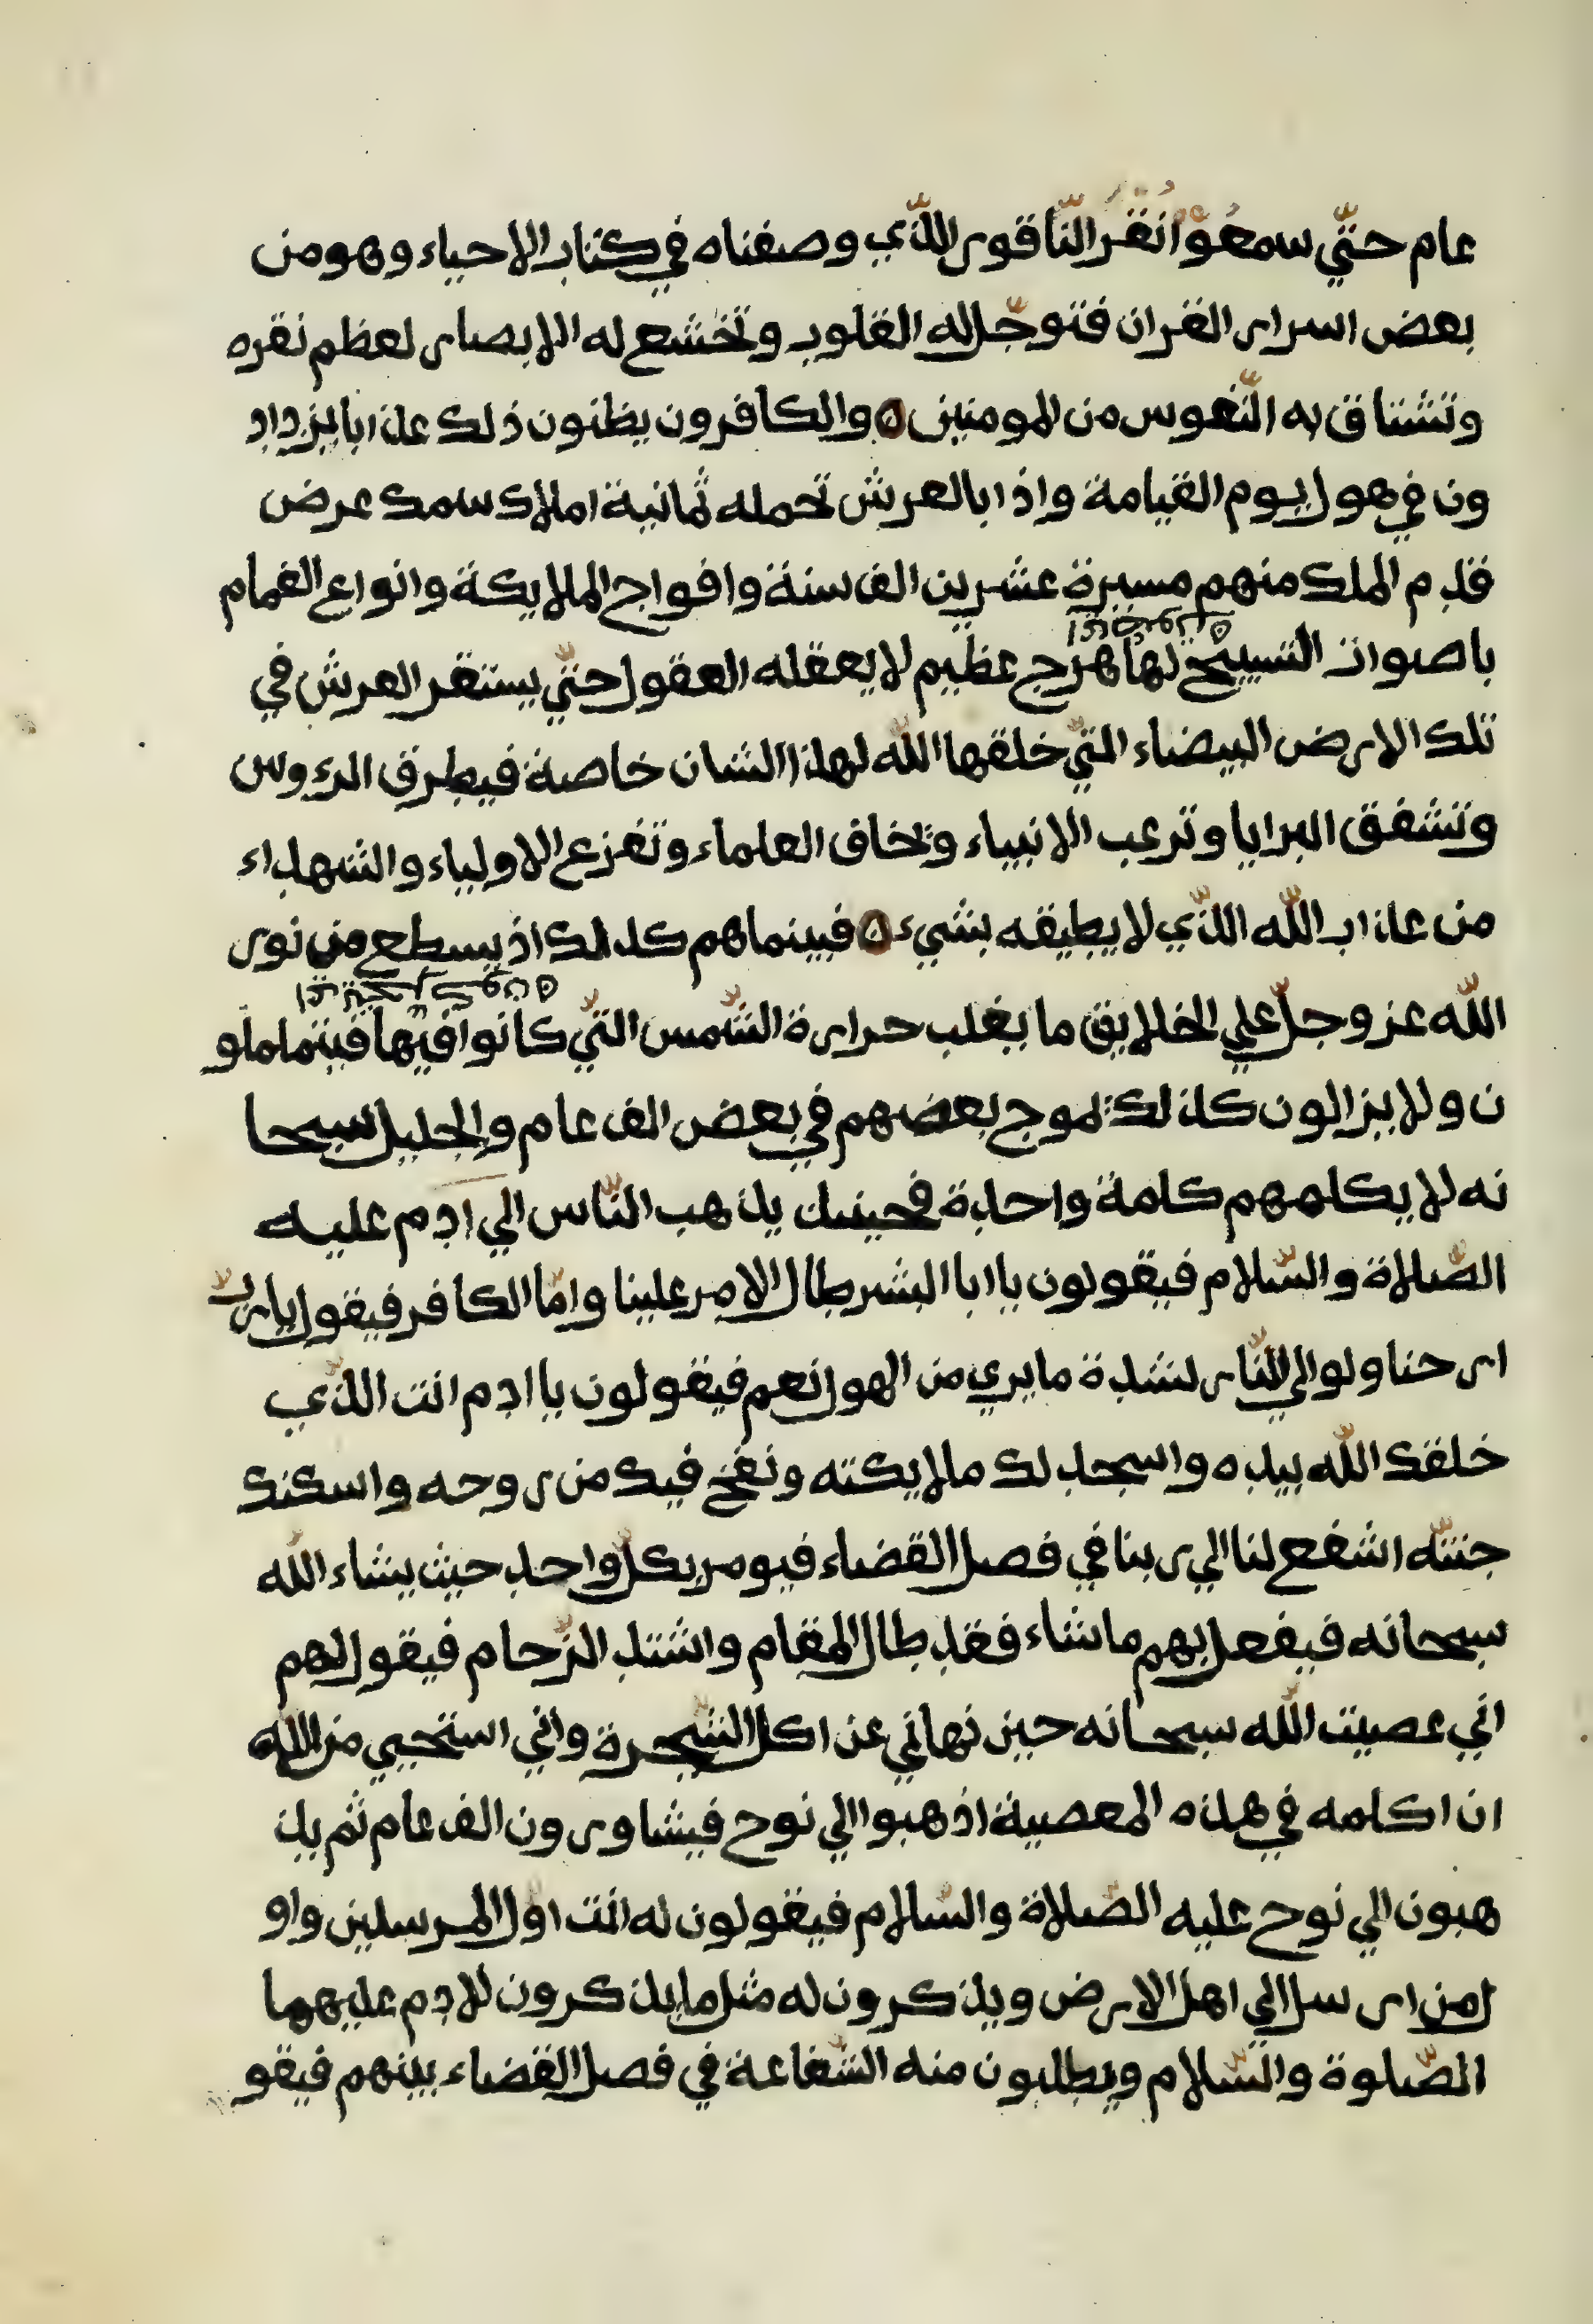 عام حتّي سمعُوْا نُقْرَ النّا قور اللّذي وصفناه في كتاب الاحياء وهو من
بعض اسرار القران فتوجّل له القلوب وتخشع له الابصار لعظم نقره
وتشتاق به النّفوس من المومنين والكافرون يظنون ذلك عذابا يزداد
ون في هول يوم القيامة واذا بالعرش تحمله ثمانية املاك سمك عرض
قدم الملك منهم مسيرة عشرين الف سنة وافواج الملايكة وانواع الغمام
باصوات التسبيح لها هرج عظيم لا يعقله العقول حتّي يستقر العرش في
تلك الارض البيضاء التّي خلقها اللّه لهذا الشان خاصة فيطرق الرءوس
وتشفق البرايا وترعب الانبياء وتخاف العلماء وتفزع الاولياء والشهداء
من عذاب اللّه اللّذي لا يطيقه بشيء فبينما هم كذلك اذ يسطع من نور
اللّه عز وجلّ علي الخلايق ما يغلب حرارة الشّمس التّي كانوا فيها فبينما ملو
ن ولا يزالون كذلك تموج بعضهم في بعض الف عام والجليل سبحا
نه لا يكلمهم كلمة واحدة فحينىذ يذهب النّاس الي ادم عليه
الصّلاة والسّلام فيقولون يا ابا البشر طال الامر علينا وامّا الكافر فيقول يا ربّ
ارحنا ولو الي النّار لشدة ما يري من الهول نعم فيقولون يا ادم انت اللّذي
خلقك اللّه بيده واسجد لك ملايكته ونفخ فيك من روحه واسكنك
جنتّه اشفع لنا الي ربنا في فصل القضاء فيومر بكلّ واحد حيث يشاء اللّه
سبحانه فيفعل بهم ما شاء فقد طال المقام واشتد الزّحام فيقول لهم
اني عصيت اللّه سبحانه حين نهاني عن اكل الشّجرة واني استحيي من اللّه
ان اكلمه في هذه المعصية اذهبوا الي نوح فيشاورون الف عام ثم يذ
هبون الي نوح عليه الصّلاة والسّلام فيقولون له انت اوّل المرسلين واو
ل من ارسل الي اهل الارض ويذكرون له مثل ما يذكرون لادم عليهما
الصّلوة والسّلام ويطلبون منه الشّفاعة في فصل القضاء بينهم فيقو